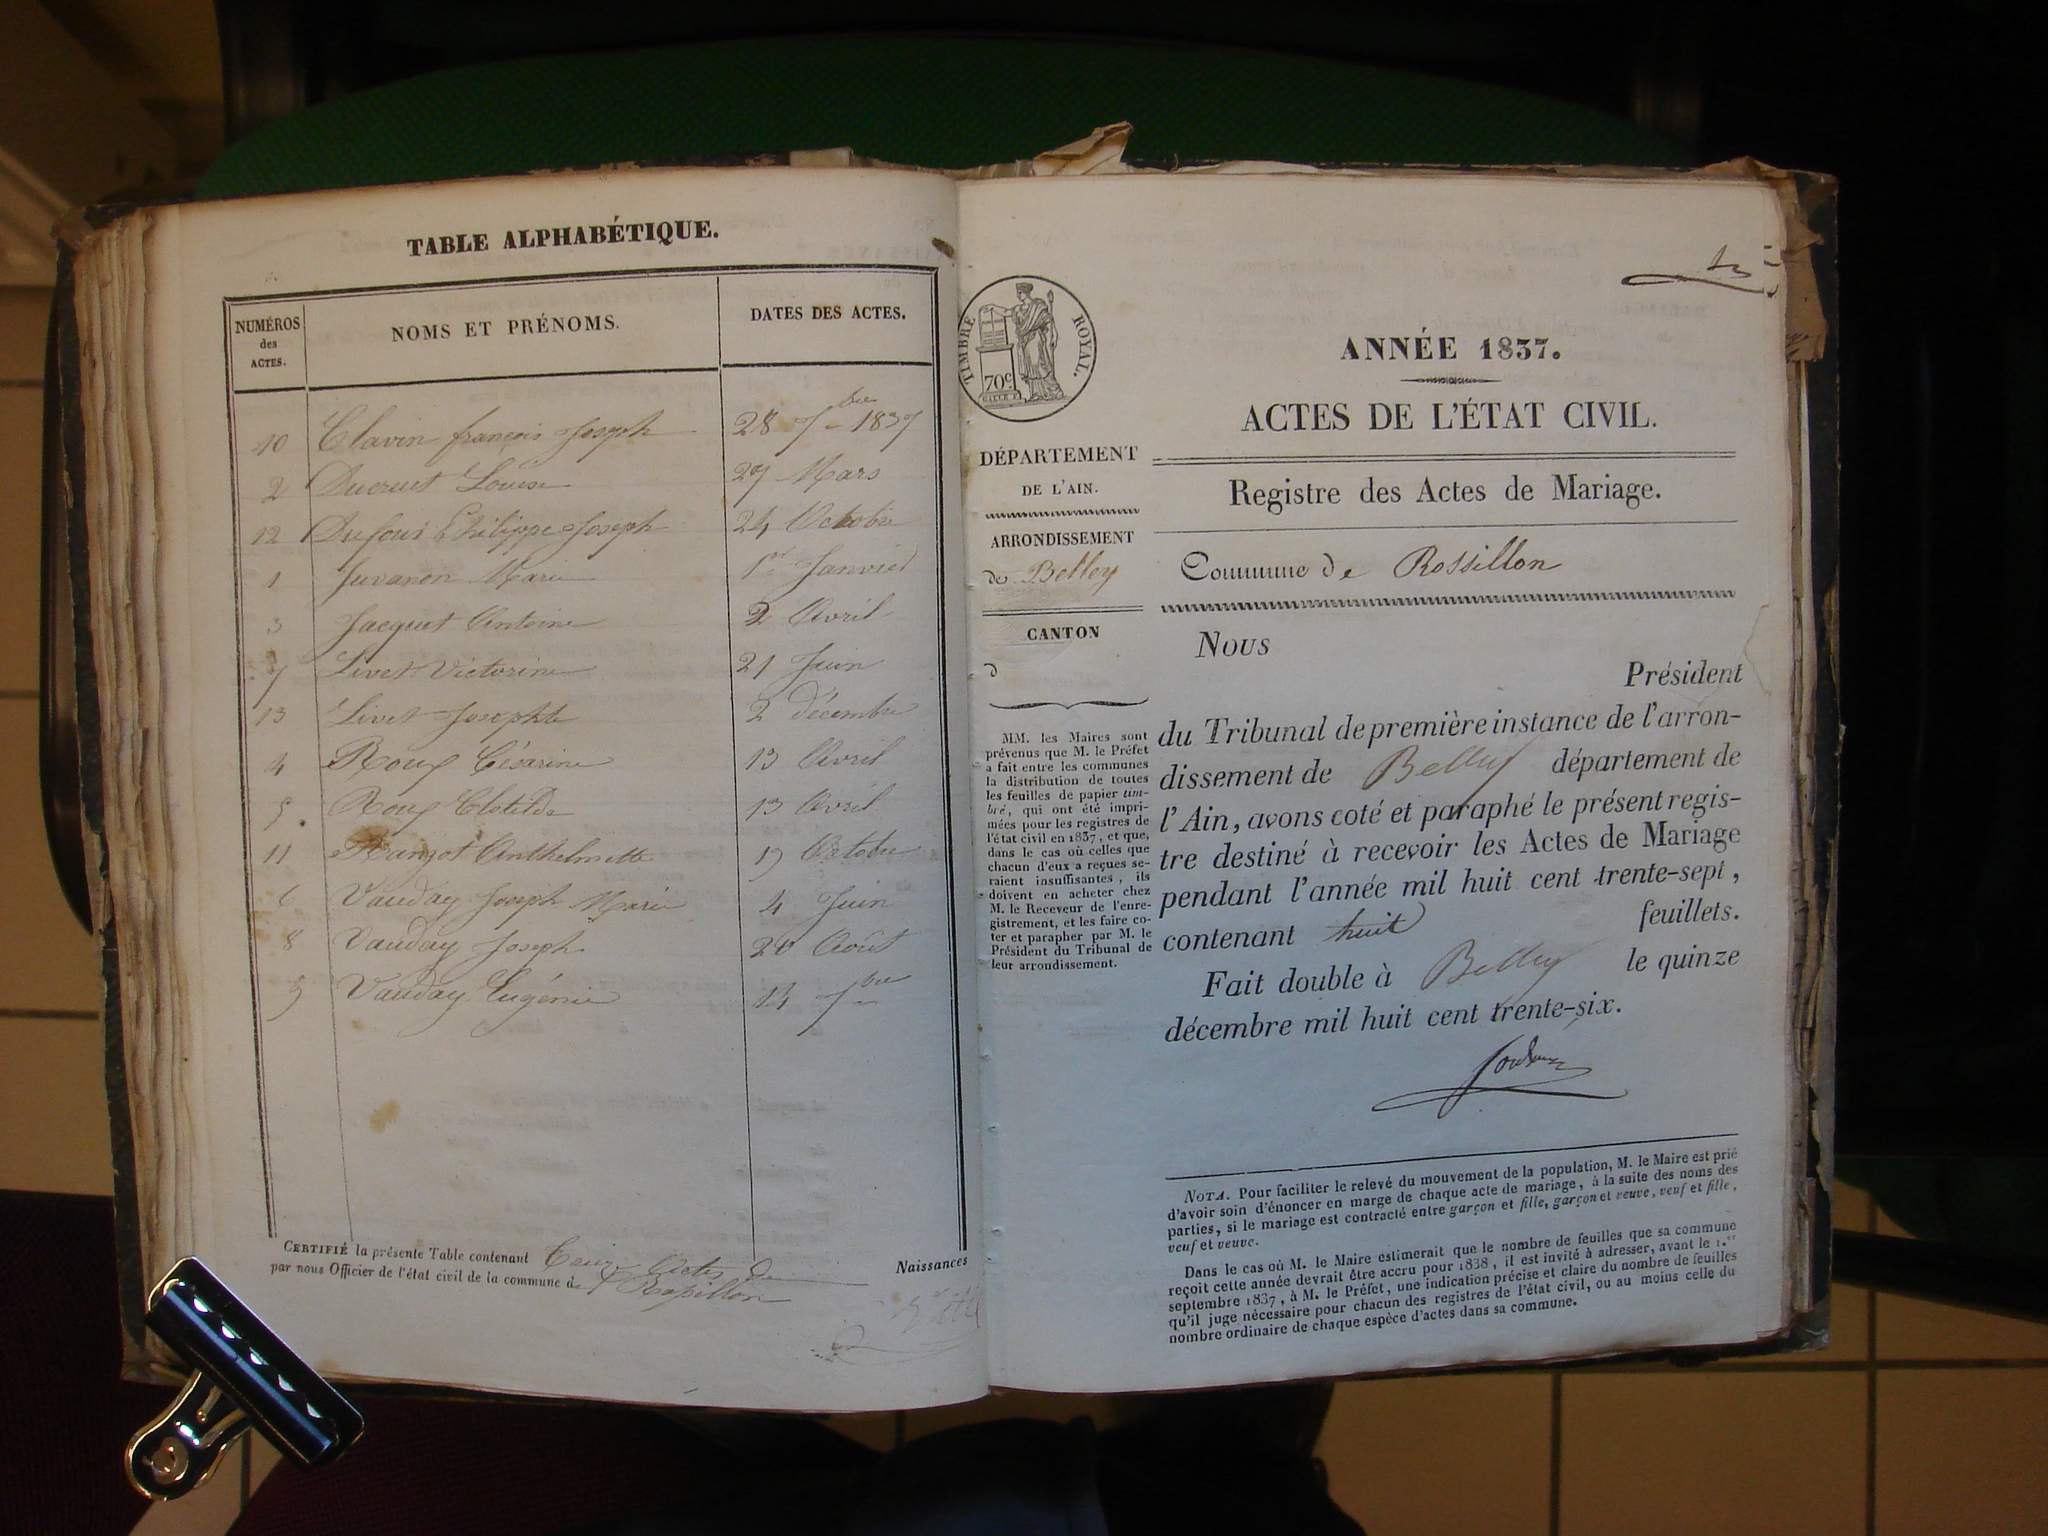 TABLE ALPHABÉTIQUE.
NUMÉROS des ACTES. NOMS ET PRÉNOMS. DATES DES ACTES.
10 Clavin françois Joseph 28 7bre 1837
2 Ducruet Louise 29 Mars
12 Dufour Philippe Joseph 24 Octobre
1 Juvanon Marie 1er Janvier
3 Jacquet Antoine 2 Avril
7 Livet Victorine 21 Juin
13 Livet Josephte 2 décembre
4 Roux Césarine 13 Avril
5 Roux Clotilde 13 Avril
11 Anthelmette 19 Octobre
6 Vauday Joseph Marie 4 Juin
8 Vauday Joseph 20 Août
9 Vauday Eugénie 14 7bre
CERTIFIÉ la présente Table contenant Treize Actes de Naissances
par nous Officier de l'état civil de la commune de Rossillon
TIMBRE ROYAL.
70c.
DÉPARTEMENT
DE L'AIN.
ARRONDISSEMENT
de Belley
CANTON
d
MM. les Maires sont
prévenus que M. le Préfet
a fait entre les communes
la distribution de toutes
les feuilles de papier tim-
bré, qui ont été impri-
mées pour les registres de
l'état civil en 1837, et que,
dans le cas où celles que
chacun d'eux a reçues se-
raient insuffisantes, ils
doivent en acheter chez
M. le Receveur de l'enre-
gistrement, et les faire co-
ter et parapher par M. le
Président du Tribunal de
leur arrondissement.
ANNÉE 1837.
ACTES DE L'ÉTAT CIVIL.
Registre des Actes de Mariage.
Commune de Rossillon
Nous
Président
du Tribunal de première instance de l'arron-
dissement de Belley département de
l'Ain, avons coté et paraphé le présent regis-
tre destiné à recevoir les Actes de Mariage
pendant l'année mil huit cent trente-sept,
contenant huit feuillets.
Fait double à Belley le quinze
décembre mil huit cent trente-six.
NOTA. Pour faciliter le relevé du mouvement de la population, M. le Maire est prié
d'avoir soin d'énoncer en marge de chaque acte de mariage, à la suite des noms des
parties, si le mariage est contracté entre garçon et fille, garçon et veuve, veuf et fille,
veuf et veuve.
Dans le cas où M. le Maire estimerait que le nombre de feuilles que sa commune
reçoit cette année devrait être accru pour 1838, il est invité à adresser, avant le 1.er
septembre 1837, à M. le Préfet, une indication précise et claire du nombre de feuilles
qu'il juge nécessaire pour chacun des registres de l'état civil, ou au moins celle du
nombre ordinaire de chaque espèce d'actes dans sa commune.